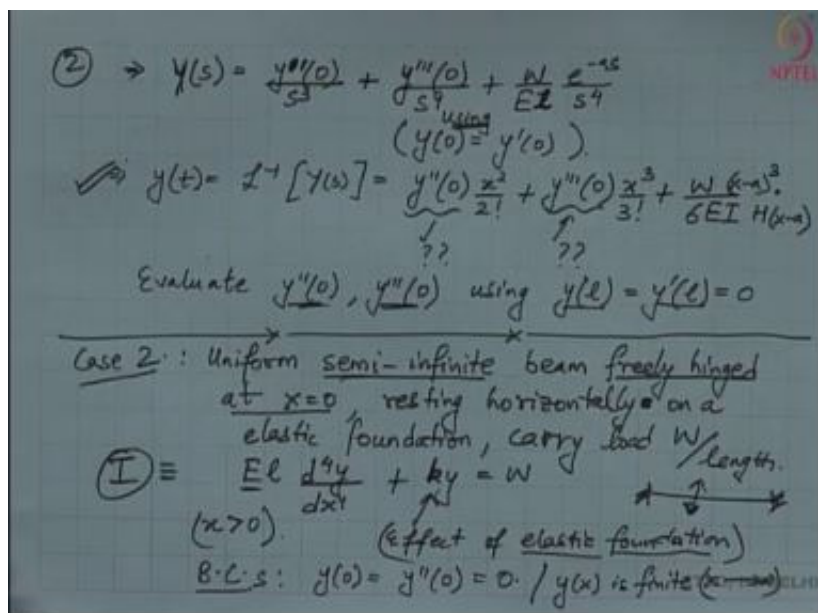 ② → Y(s) = y''(0)/s³ + y'''(0)/s⁴ + W/EI e^{-as}/s⁴
using
(y(0) = y'(0)).
y(t) = L⁻¹[Y(s)] = y''(0) x²/2! + y'''(0) x³/3! + W(x-a)³/6EI · H(x-a)
?? ??
Evaluate y''(0), y'''(0) using y(l) = y'(l) = 0
Case 2 : Uniform semi-infinite beam freely hinged
at x=0, resting horizontally on a
elastic foundation, carry load W/length.
Ⓘ ≡ EI d⁴y/dx⁴ + ky = W
(x>0). (Effect of elastic foundation)
B.C.s : y(0) = y''(0) = 0. / y(x) is finite
NPTEL